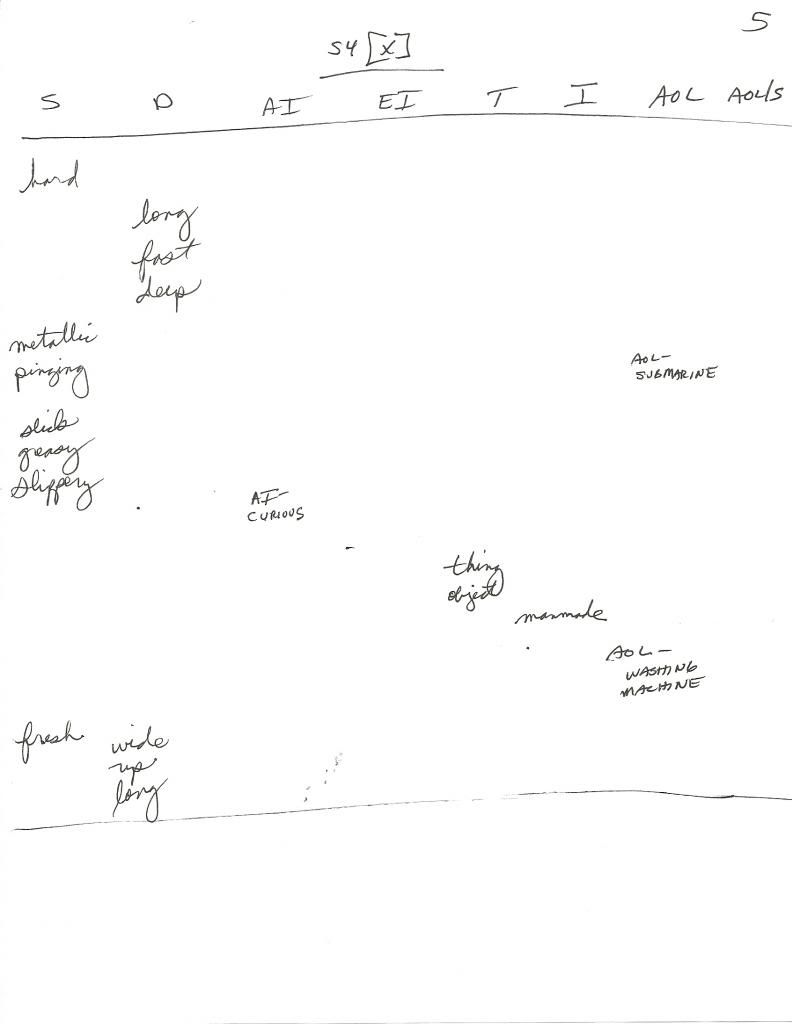 5
S4 [X]
S D AI EI T I AOL AOL/S
hard
long
fast
deep
metallic
pinging
AOL-
SUBMARINE
slick
greasy
slippery
AI-
CURIOUS
thing
object
manmade
AOL-
WASHING
MACHINE
fresh wide
up
long